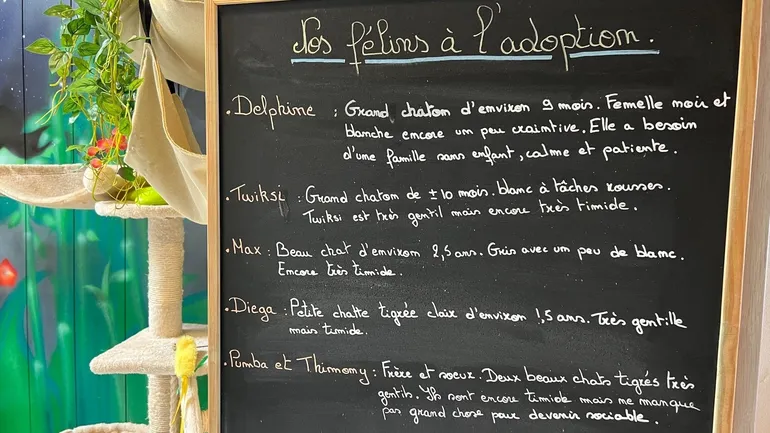 Nos félins à l'adoption.
. Delphine : Grand chaton d'environ 9 mois. Femelle noir et
blanche encore un peu craintive. Elle a besoin
d'une famille sans enfant, calme et patiente.
. Twiksi : Grand chaton de ± 10 mois. blanc à tâches rousses.
Twiksi est très gentil mais encore très timide.
. Max : Beau chat d'environ 2,5 ans. Gris avec un peu de blanc.
Encore très timide.
. Diega : Petite chatte tigrée clair d'environ 1,5 ans. Très gentille
mais timide.
. Pumba et Thimomy : Frère et soeur. Deux beaux chats tigrés très
gentils. Ils sont encore timide mais ne manque
pas grand chose pour devenir sociable.